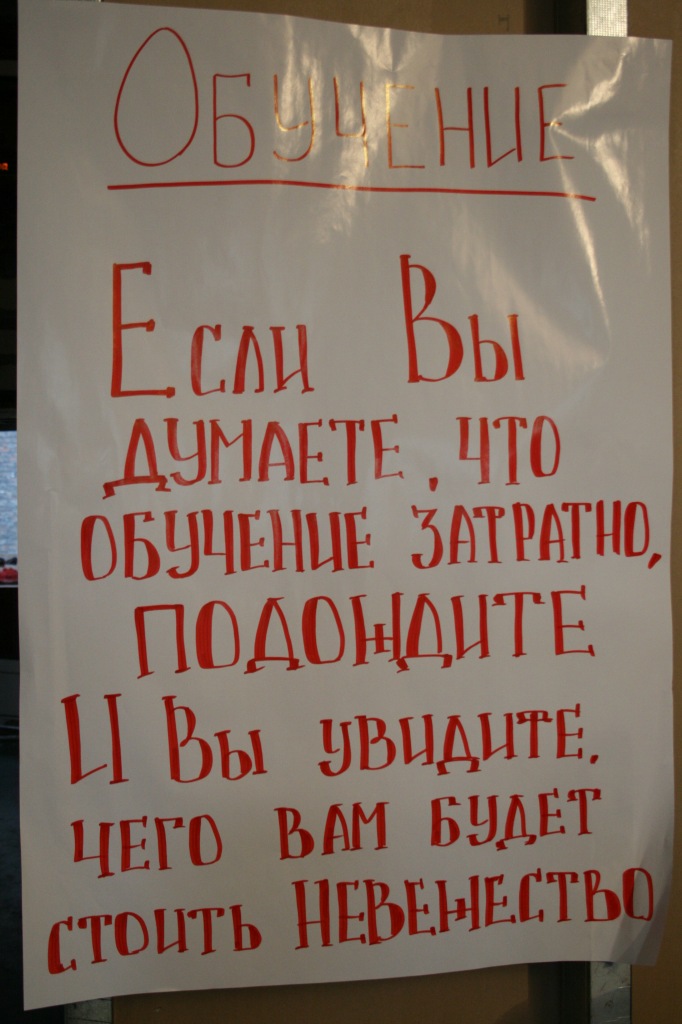 Обучение
Если Вы
думаете, что
обучение затратно,
подождите
И Вы увидите,
чего вам будет
стоить невежество